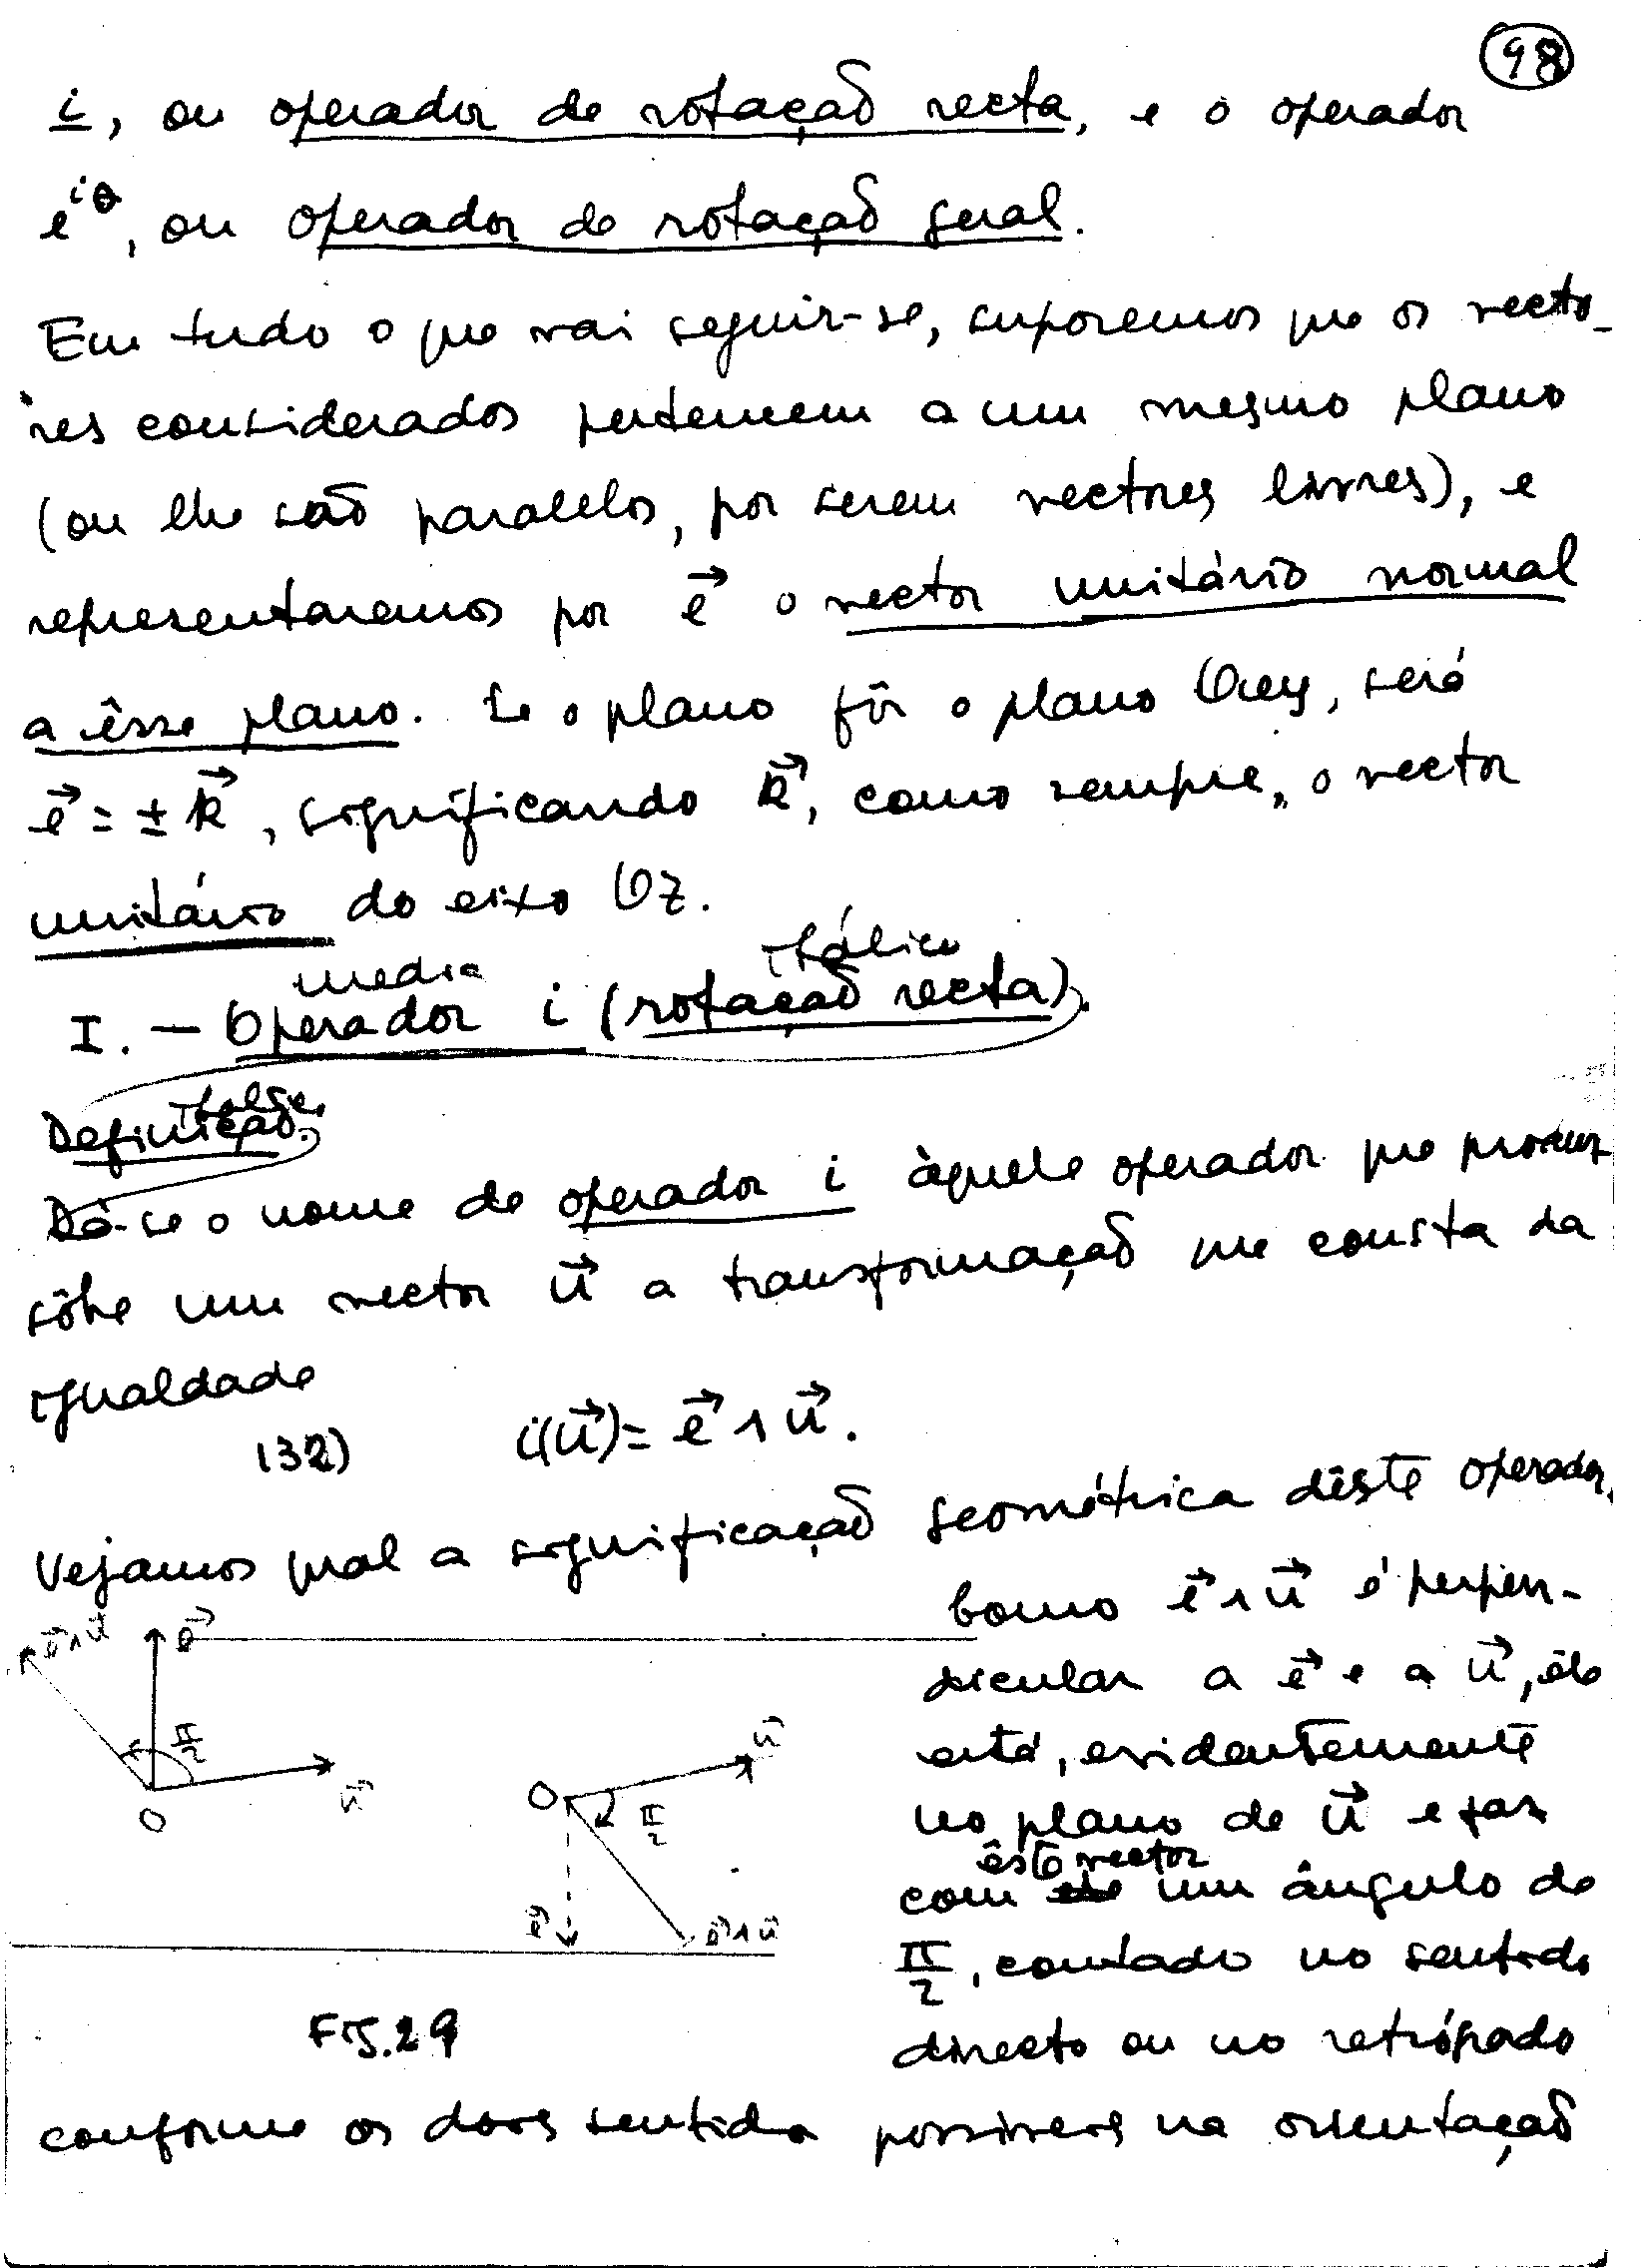 98
i, ou operador de rotação recta, e o operador
e^{iθ}, ou operador de rotação geral.
Em tudo o que vai seguir-se, suporemos que os vecto-
res considerados pertencem a um mesmo plano
(ou lhe são paralelos, por serem vectores livres), e
representaremos por e⃗ o vector unitário normal
a êsse plano. Se o plano fôr o plano Oxy, será
e⃗ = ± k⃗, significando k⃗, como sempre, o vector
unitário do eixo Oz.
media itálico
I. — Operador i (rotação recta).
itálico
Definição.
Dá-se o nome de operador i àquele operador que produz
sôbre um vector u⃗ a transformação que consta da
igualdade
132) i(u⃗) = e⃗ ∧ u⃗.
Vejamos qual a significação geométrica dêste operador.
Como e⃗ ∧ u⃗ é perpen-
dicular a e⃗ e a u⃗, êle
está, evidentemente
no plano de u⃗ e faz
êste vector
com um ângulo de
π/2, contado no sentido
directo ou no retrógrado
e⃗∧u⃗ e⃗
π/2
u⃗
O
u⃗
O
π/2
e⃗ e⃗∧u⃗
Fig. 29
conforme os dois sentidos possíveis na orientação